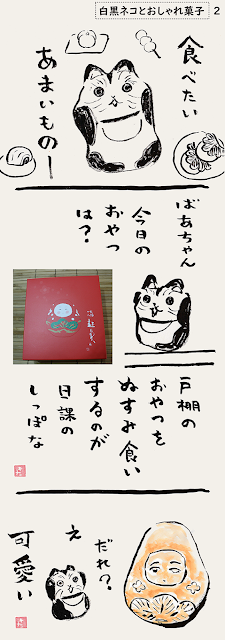 白黒ネコとおしゃれ菓子 2
食べたい
あまいものー
ばあちゃん
今日の
おやつ
は？
戸棚の
おやつを
ぬすみ食い
するのが
日課の
しっぽな
だれ？
え
可愛い